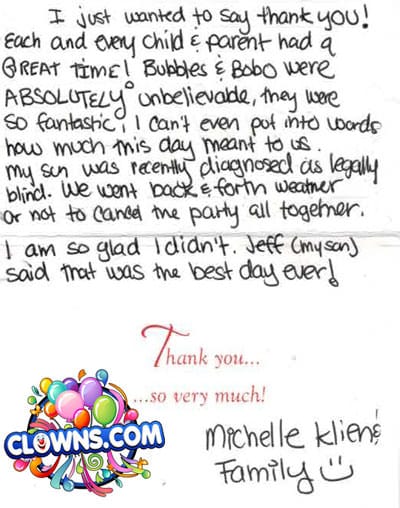 I just wanted to say thank you!
Each and every child & parent had a
GREAT TIME! Bubbles & Bobo were
ABSOLUTELY unbelievable, they were
so fantastic, I can't even put into words
how much this day meant to us.
my son was recently diagnosed as legally
blind. We went back & forth weather
or not to cancel the party all together.
I am so glad I didn't. Jeff (my son)
said that was the best day ever!
Thank you...
...so very much!
CLOWNS.COM
Michelle Klien &
Family